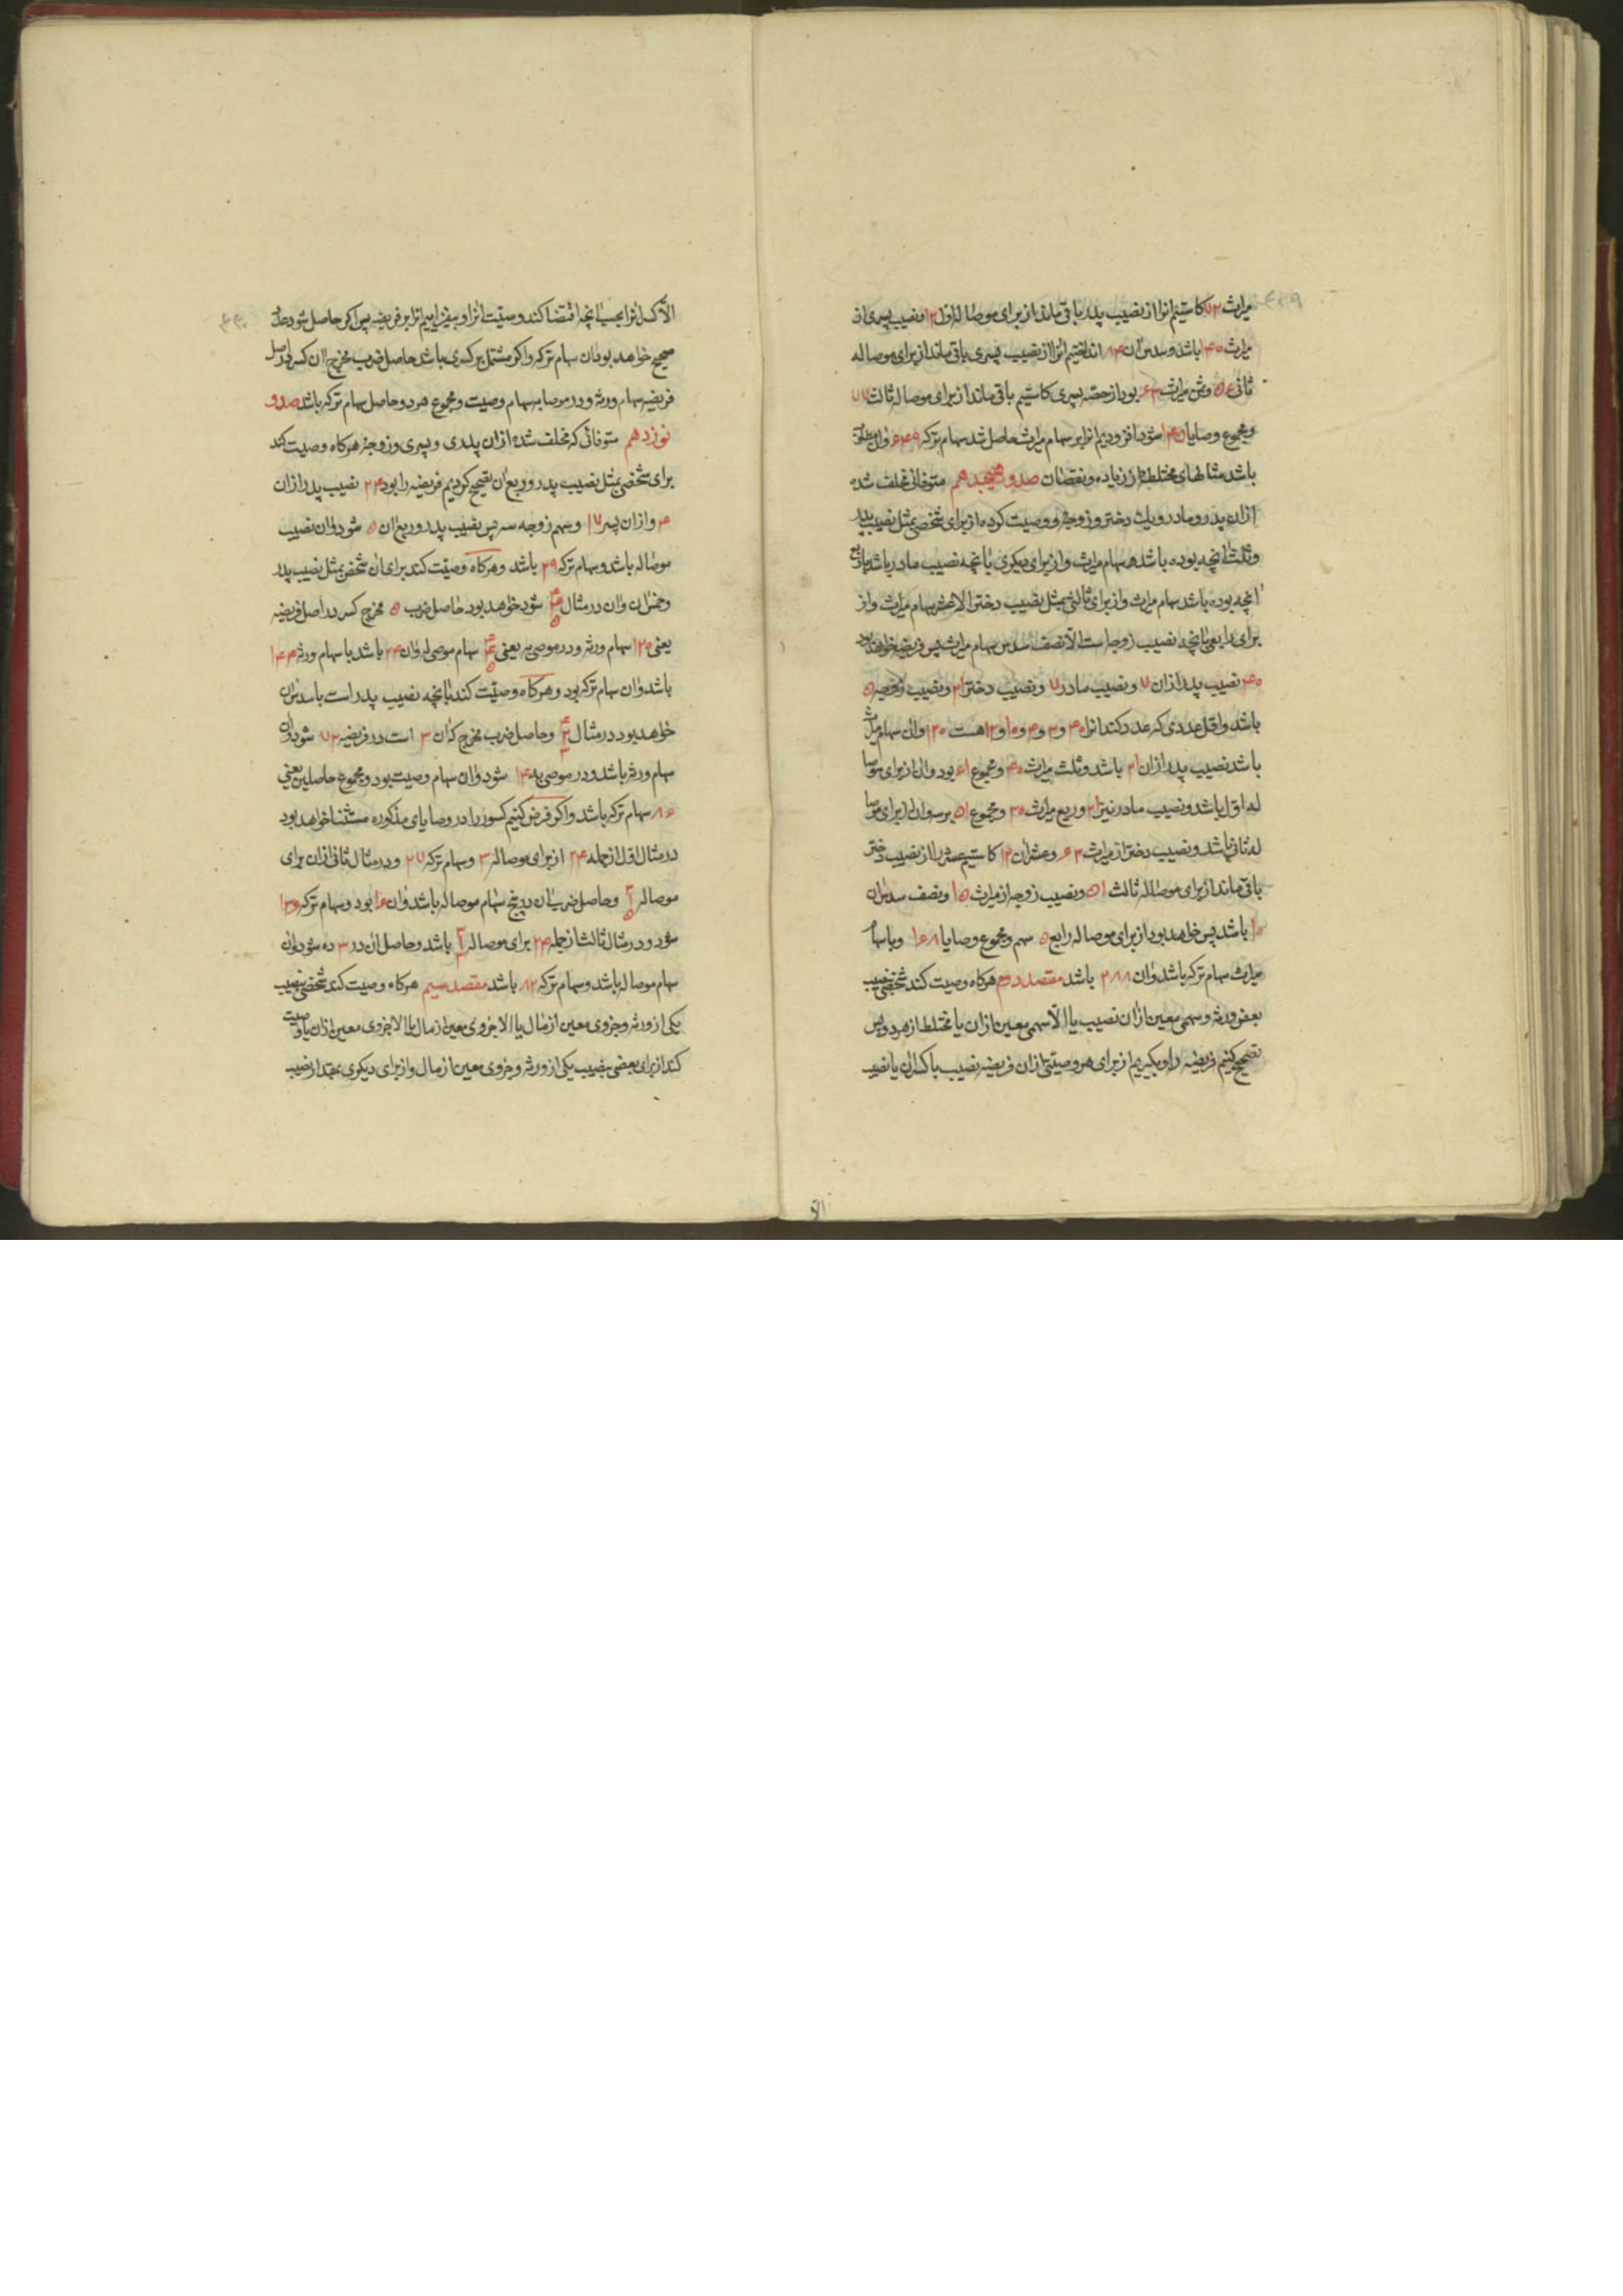 میراث ۷۲ کاستیم انرا از نصیب پدر باقی ماند از برای موصا له اول ۱۲ و نصیب پسری از
میراث ۱۴۰ باشد و سدس ان ۸۴ انداختیم انرا از نصیب پسری باقی ماند از برای موصا له
ثانی ۵۶ و ثمن میراث ۶۳ بود از حصه پسری کاستیم باقی ماند از برای موصا له ثالث ۷۷
و مجموع وصایا ۱۴۵ شود افزودیم انرا بر سهام میراث حاصل شد سهام ترکه ۶۴۹ و ان مطلوب
باشد مثالهای مختلط از زیاده و نقصان صد و هیجدهم متوفائی مخلف شده
ازان پدر و مادر و یک دختر و زوجه و وصیت کرده از برای شخصی بمثل نصیب پدر
و ثلث انچه بوده باشد سهام میراث و از برای دیکری بانچه نصیب مادر باشد با ربع
انچه بوده باشد سهام میراث و از برای ثالثی بمثل نصیب دختر الا عشر سهام میراث و از
برای رابعی بانچه نصیب زوجه است الا نصف سدس سهام میراث پس فریضه خواهد بود
۴۰ نصیب پدر ازان ۷ و نصیب مادر ۷ و نصیب دختر ۲۱ و نصیب زوجه ۵
باشد و اقل عددی که عد کند انرا ۴۰ و ۳ و ۴ و ۱۰ و ۱۲ هست ۱۲۰ و ان سهام میراث
باشد نصیب پدر ازان ۲۱ باشد و ثلث میراث ۴۰ و مجموع ۶۱ بود و ان از برای موصا
له اول باشد و نصیب مادر نیز ۲۱ و ربع میراث ۳۰ و مجموع ۵۱ برسد و ان از برای موصا
له ثانی باشد و نصیب دختر از میراث ۶۳ و عشر ان ۱۲ کاستیم عشر را از نصیب دختر
باقی ماند از برای موصا له ثالث ۵۱ و نصیب زوجه از میراث ۱۵ و نصف سدس ان
۱۰ باشد پس خواهد بود از برای موصا له رابع ۵ سهم و مجموع وصایا ۱۶۸ و با سهام
میراث سهام ترکه باشد و ان ۲۸۸ باشد مقصد دوم هرکاه وصیت کند شخصی بنصیب
بعض ورثه و سهمی معین ازان نصیب یا الا سهمی معین ازان یا مختلط از هر دو پس
تصحیح کنیم فریضه را و بکیریم از برای هر وصیتی ازان فریضه نصیب با کسر ان یا نصیب
الا کسر انرا بحسب انچه اقتضا کند وصیت انرا و بیفزاییم انرا بر فریضه پس اکر حاصل شود عدد
صحیح خواهد بود ان سهام ترکه و اکر مشتمل بر کسری باشد حاصل ضرب مخرج ان کسر در اصل
فریضه سهام ورثه و در موصا به سهام وصیت و مجموع هر دو حاصل سهام ترکه باشد صد و
نوزدهم متوفائی که مخلف شده ازان پدری و پسری و زوجه هرکاه وصیت کند
برای شخصی بمثل نصیب پدر و ربع ان تصحیح کردیم فریضه را بود ۲۴ نصیب پدر ازان
۴ و ازان پسر ۱۷ و سهم زوجه سه پس نصیب پدر و ربع ان ۵ شود و ان نصیب
موصا له باشد و سهام ترکه ۲۹ باشد و هرکاه وصیت کند برای ان شخص بمثل نصیب پدر
و خمس ان و ان در مثال ۴ ۴ ۵ شود خواهد بود حاصل ضرب ۵ مخرج کسر در اصل فریضه
یعنی ۱۲۰ سهام ورثه و در موصی به یعنی ۴ ۴ ۵ سهام موصی له و ان ۲۴ باشد با سهام ورثه ۱۴۴
باشد و ان سهام ترکه بود و هرکاه وصیت کند بانچه نصیب پدر است با سدس ان
خواهد بود در مثال ۴ ۲ ۳ و حاصل ضرب مخرج که ان ۳ است در فریضه ۷۲ شود و ان
سهام ورثه باشد و در موصی به ۱۴ شود و ان سهام وصیت بود و مجموع حاصلین یعنی
۸۶ سهام ترکه باشد و اکر فرض کنیم کسور را در وصایای مذکوره مستثنا خواهد بود
در مثال اول از جمله ۲۴ از برای موصا له ۳ و سهام ترکه ۲۷ و در مثال ثانی ازان برای
موصا له و حاصل ضرب ان در پنج سهام موصا له باشد و ان ۱۶ بود و سهام ترکه ۱۳۶
شود و در مثال ثالث از جمله ۲۴ برای موصا له باشد و حاصل ان در ۳ ده شود و ان
سهام موصا له باشد و سهام ترکه ۸۲ باشد مقصد سیم هرکاه وصیت کند شخصی بنصیب
یکی از ورثه و جزوی معین از مال یا الا جزوی معین از مال یا الا جزوی معین ازان یا وصیت
کند از برای بعضی بنصیب یکی از ورثه و جزوی معین از مال و از برای دیکری بمقدار نصیب